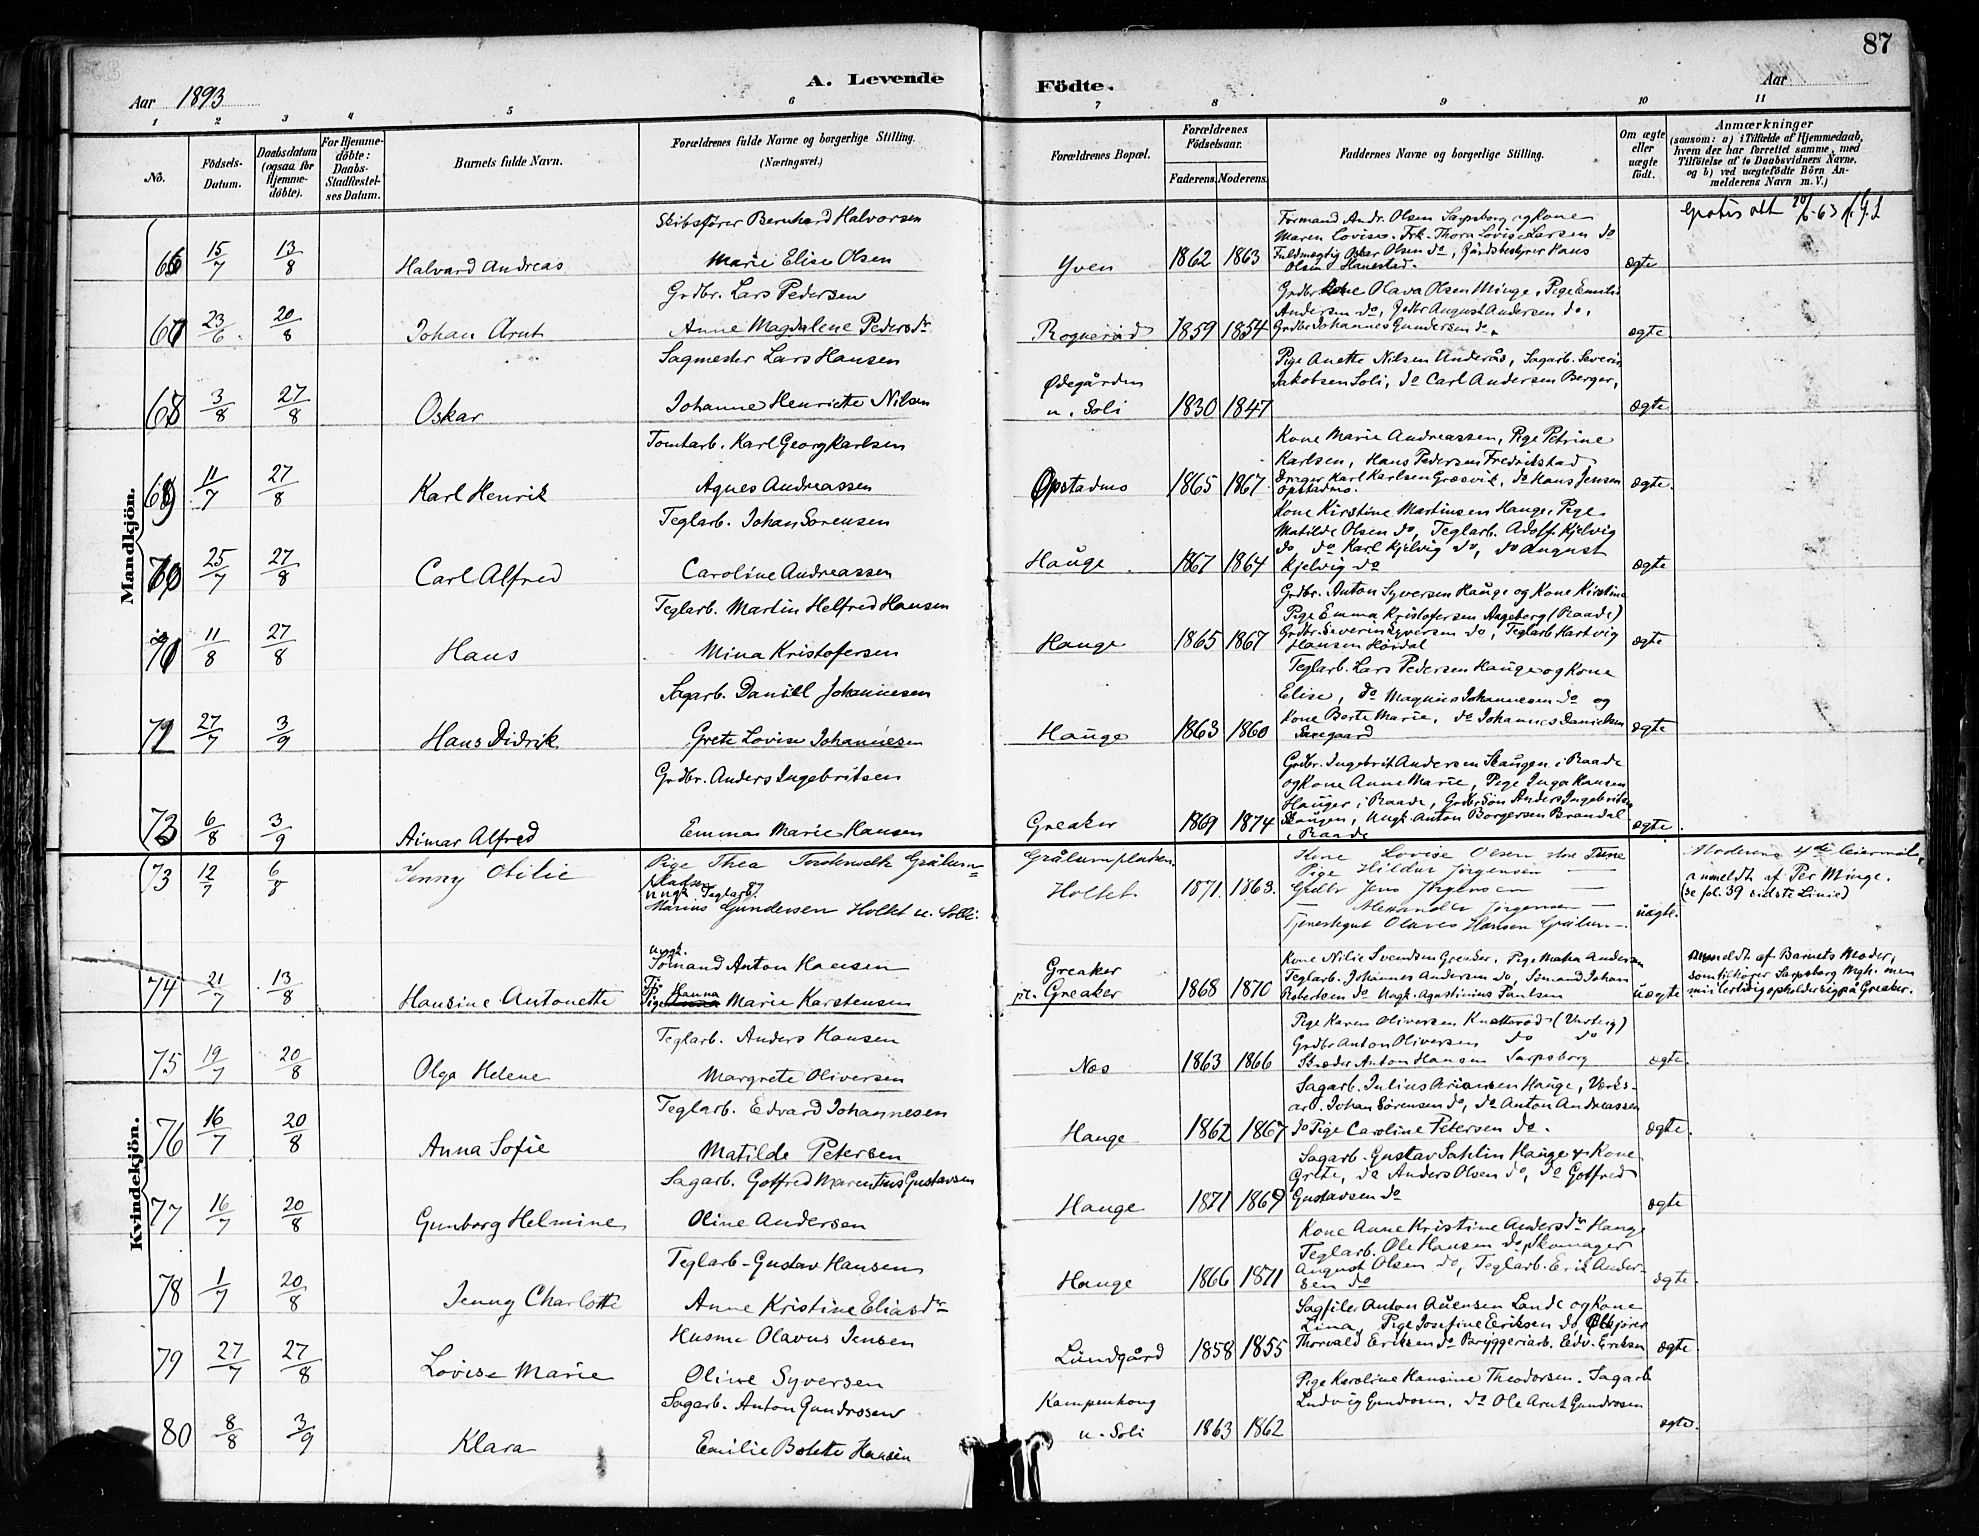 87
Aar 1893
A. Levende
Födte.
Aar
1 2 3 4 5 6 7 8 9 10 11
No.
Födsels-Datum.
Daabsdatum (ogsaa for Hjemmedöbte).
For Hjemmedöbte: Daabs-Stadfæstelses Datum.
Barnets fulde Navn.
Forældrenes fulde Navne og borgerlige Stilling. (Næringsvei.)
Forældrenes Bopæl.
Forældrenes Födselsaar.
Faderens. Moderens.
Faddernes Navne og borgerlige Stilling.
Om ægte eller uægte födt.
Anmærkninger
(saasom: a) i Tilfælde af Hjemmedaab, hvem der har forrettet samme, med Tilföielse af to Daabsvidners Navne, og b) ved uægtefödte Börn Anmelderens Navn m. V.)
Mandkjön.
66 15/7 13/8 Halvard Andreas
Skibsfører Bernhard Halvorsen
Marie Elise Olsen
Yven 1862 1863
Formand Andr. Olsen Sarpsborg og Kone
Maren Lovise. Frk. Thora Lovise Larsen do
Fuldmægtig Oskar Olsen do, Gårdsbestyrer Hans
Olsen Hanestad.
ægte
67 23/6 20/8 Johan Arnt
Grdbr. Lars Pedersen
Anne Magdalene Pedersdr.
Rognerød 1859 1854
Grdbr Kone Olava Olsen Minge, Pige Emilie
Andersen do, Grdbr August Andersen do,
Grdbr Johannes Gundersen do.
ægte
68 3/8 27/8 Oskar
Sagmester Lars Hansen
Johanne Henriette Nilsen
Ødegården
u. Soli 1830 1847
Pige Anette Nilsen Underås, Sagarb. Severin
Jakobsen Soli, do Carl Andersen Berger,
ægte
69 11/7 27/8 Karl Henrik
Tomtarb. Karl Georg Karlsen
Agnes Andreassen
Opstadmo 1865 1867
Kone Marie Andreassen, Pige Petrine
Karlsen, Hans Pedersen Fredrikstad
Drager Karl Karlsen Græsvik, do Hans Jensen
Opstadmo.
ægte
70 25/7 27/8 Carl Alfred
Teglarb. Johan Sørensen
Caroline Andreassen
Hauge 1867 1864
Kone Kirstine Martinsen Hauge, Pige
Matilde Olsen do, Teglarb. Adolf Kjelvig
do, do Karl Kjelvig do, do August
Kjelvig do
ægte
71 11/8 27/8 Hans
Teglarb. Martin Helfred Hansen
Mina Kristofersen
Hauge 1865 1867
Grdbr. Anton Syversen Hauge og Kone Kirstine
Pige Emma Kristofersen Augeberg (Raade)
Grdbr. Severin Syversen do, Teglarb Hartvig
Hansen Hørdal
ægte
72 27/7 3/9 Hans Didrik
Sagarb. Daniel Johannesen
Grete Lovise Johannesen
Hauge 1863 1860
Teglarb. Lars Pedersen Hauge og Kone
Elise, do Magnus Johannesen do og
Kone Berte Marie, do Johannes Danielsen
ægte
73 6/8 3/9 Aimar Alfred
Grdbr. Anders Ingebritsen
Emma Marie Hansen
Greaker 1869 1874
Grdbr. Ingebrit Andersen Haugen i Raade
og Kone Anne Marie, Pige Inga Hansen
Hauger i Raade, Grdbr. Søn Anders Ingebritsen
Haugen, Ungk Anton Borgersen Brandal
i Raade
ægte
Kvindekjön.
73 12/7 6/8 Jenny Otilie
Pige Thea Grålum-
pladsen
Ungk. Teglarb.
Marius Gundersen Holtet u. Solli
Grålumpladsen
Holtet 1871. 1863.
Kone Lovise Olsen store Tune
Pige Hildur Jörgensen
Grdbr Jens Jörgensen
Alexander Jörgensen
Tjenestegut Olaves Hansen Grålum
uægte.
Moderens 4de Leiermål,
anmeldt af Per Minge.
(se fol. 39 sidste Linie)
74 21/7 13/8 Hansine Antonette
Ungk.
Sömand Anton Hansen
Pige Hanna Marie Karstensen
Greaker
pt. Greaker 1868 1870
Kone Nilie Svendsen Greaker, Pige Matha Andersen
Teglarb. Johannes Andersen do, Sömand Johan
Robertsen do Ungk. Agustinius Paulsen
uægte
Anmeldt af Barnets Moder,
som tilhører Sarpsborg Mgh. men
midlertidig opholder sig på Greaker.
75 19/7 20/8 Olga Helene
Teglarb. Anders Hansen
Margrete Oliversen
Næs 1863 1866
Pige Karen Oliversen Knatterød (Varteig)
Grdbr Anton Oliversen do do
Skræder Anton Hansen Sarpsborg
ægte.
76 16/7 20/8 Anna Sofie
Teglarb. Edvard Johannesen
Matilde Petersen
Hauge 1862 1867
Sagarb. Julius Ariansen Hauge, Værks-
arb. Johan Sørensen do, do Anton Andreassen
do Pige Caroline Petersen do.
ægte.
77 16/7 20/8 Gunborg Helmine
Sagarb. Gotfred Marentius Gustavsen
Oline Andersen
Hauge 1871 1869
Sagarb. Gustav Sahlin Hauge & Kone
Grete, do Anders Olsen do, do Gotfred
Gustavsen do
ægte
78 1/7 20/8 Jenny Charlotte
Teglarb. Gustav Hansen
Anne Kristine Eliasdr
Hauge 1866 1871
Kone Anne Kristine Andersdr Hauge
Teglarb. Ole Hansen do, Skomager
August Olsen do, Teglarb. Erik Ander-
sen do
ægte
79 27/7 27/8 Lovise Marie
Husmd Olavus Jensen
Oline Syversen
Lundgård 1858 1855
Sagfiler Anton Auensen Lande og Kone
Lina, Pige Josefine Eriksen do Ølkjører
Thorvald Eriksen do Bryggeriarb. Edv. Eriksen
ægte
80 8/8 3/9 Klara
Sagarb. Anton Gundrosen
Emilie Bolette Hansen
Kampenhoug
u. Soli 1863 1862
Pige Karoline Hansine Theodorsen. Sagarb
Ludvig Gundrosen, do Ole Arnt Gundrosen
ægte.